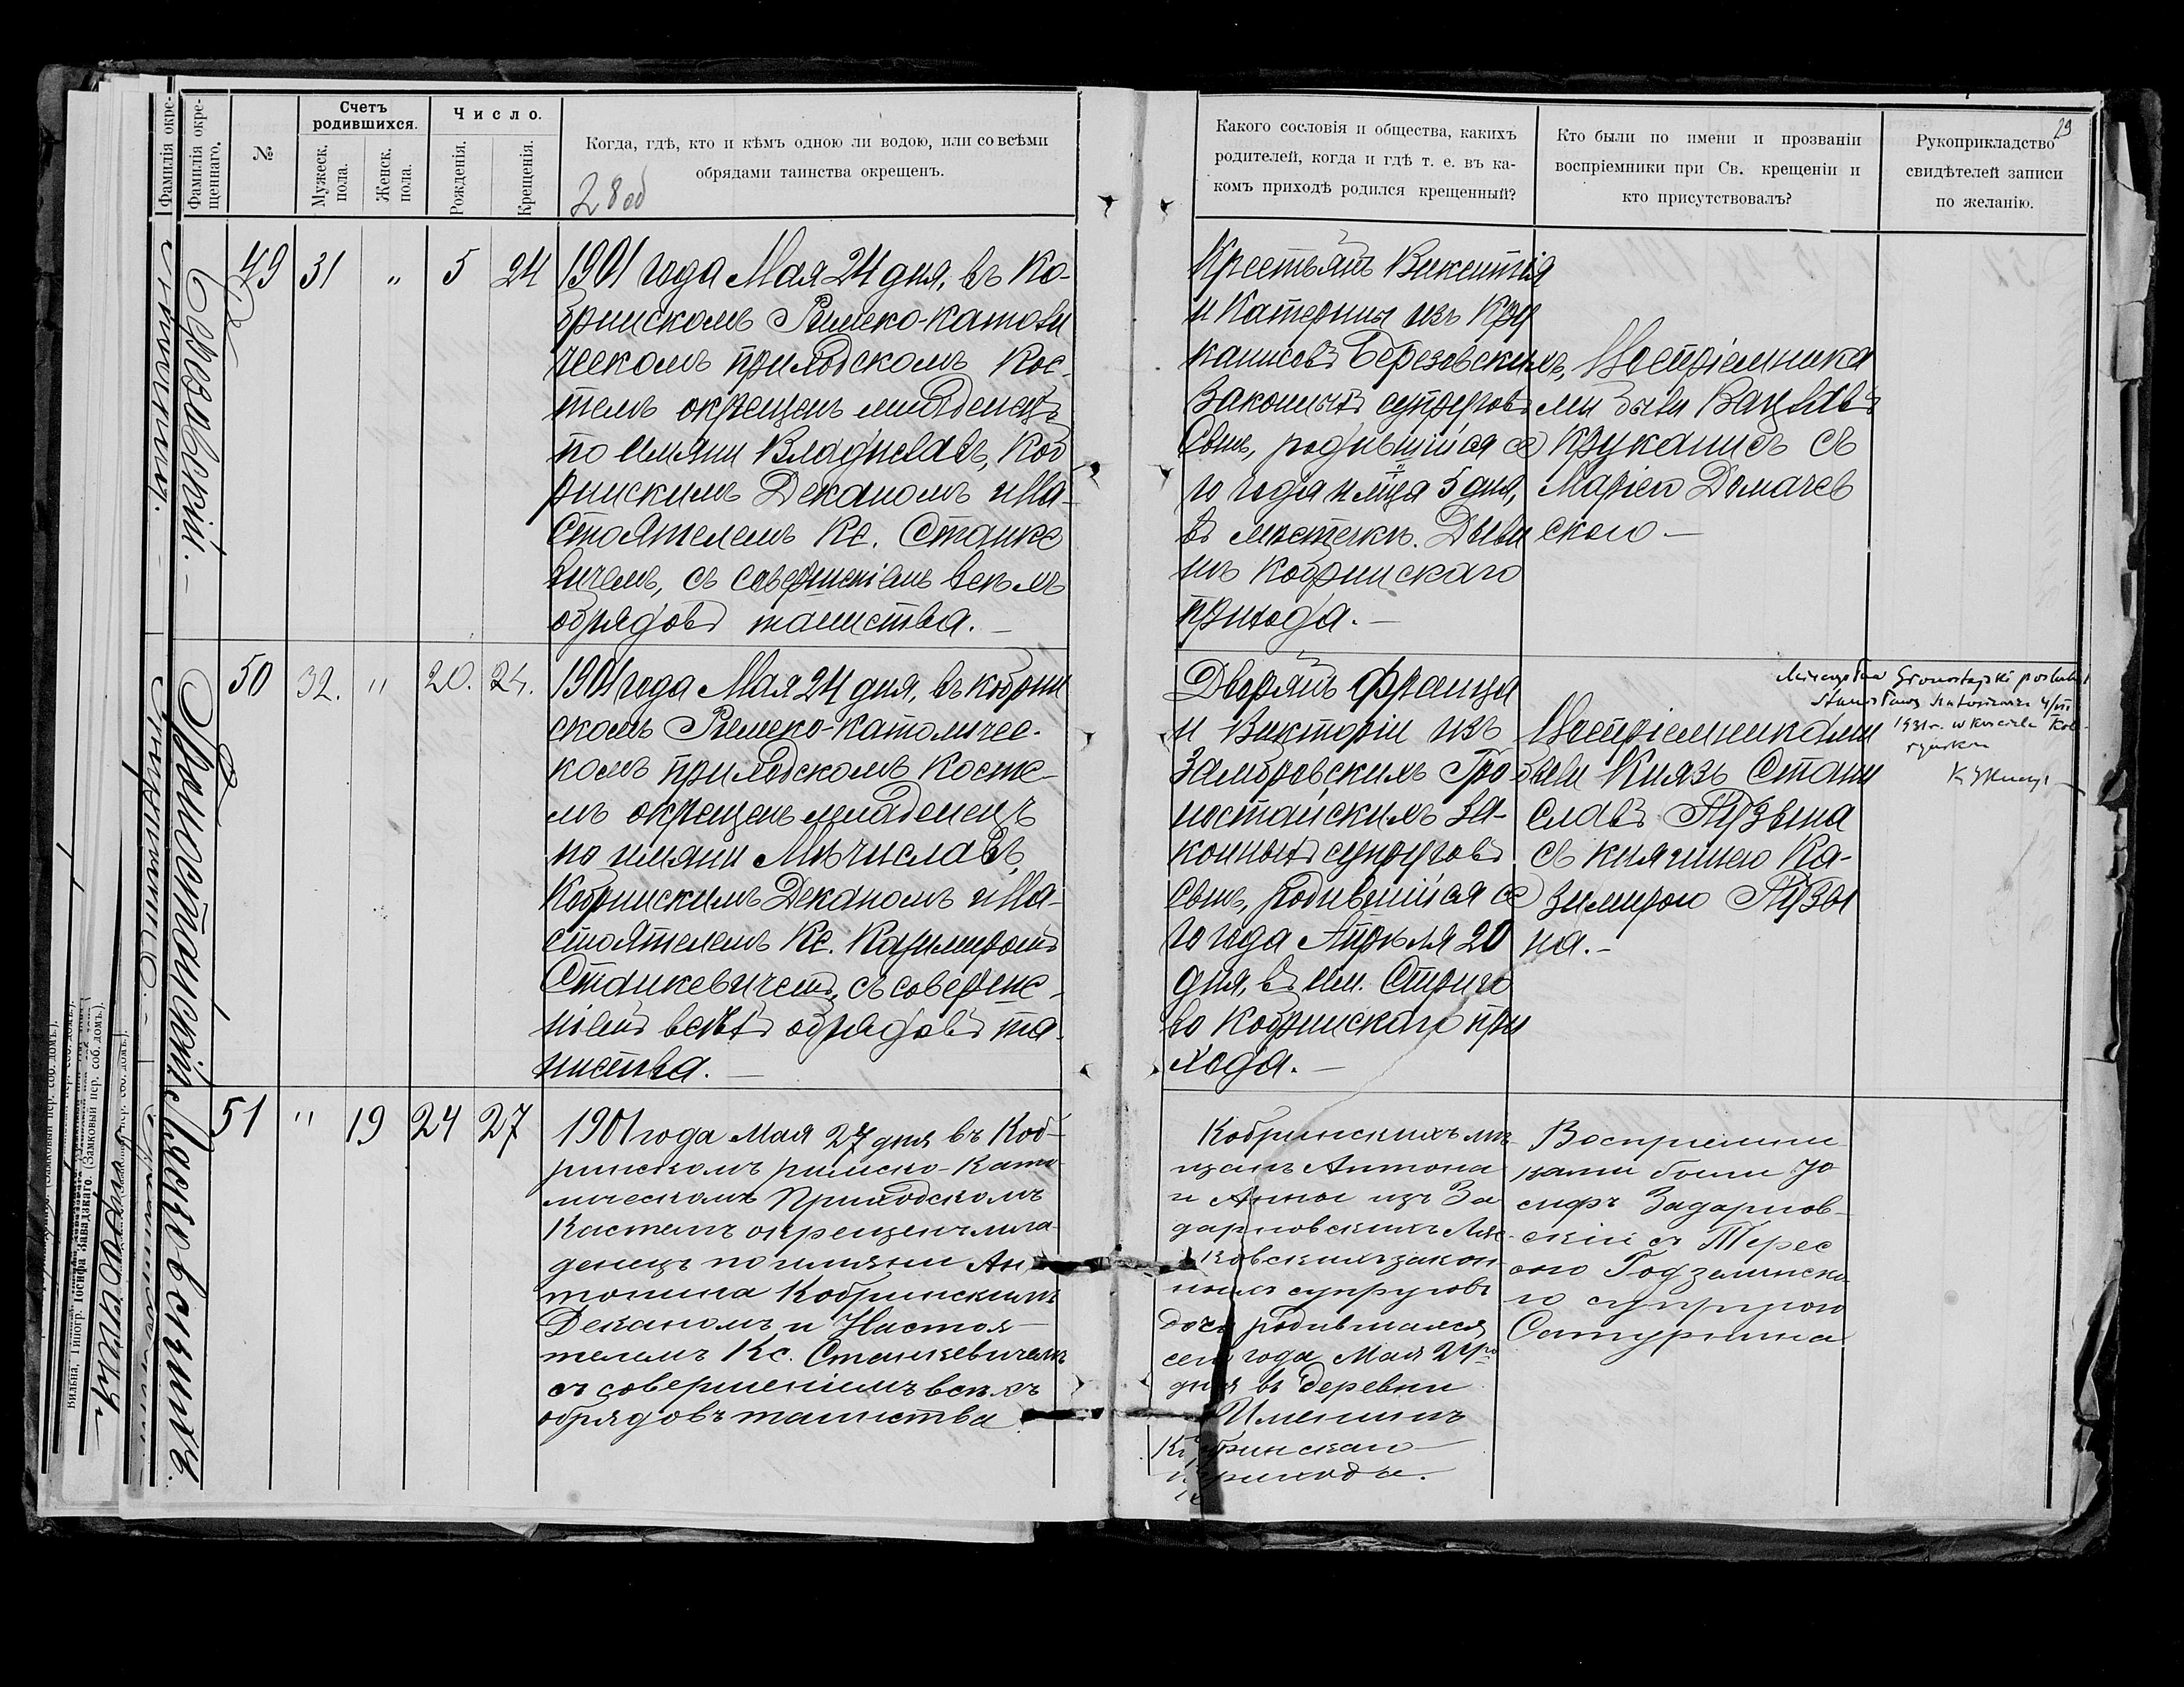 29
Фамилія окре-
Фамилія окре-
щеннаго.
№
Счетъ
родившихся.
Мужеск.
пола.
Женск.
пола.
Число.
Рожденія.
Крещенія.
Когда, гдѣ, кто и кѣмъ одною ли водою, или со всѣми
обрядами таинства окрещенъ.
28 об
Какого сословія и общества, какихъ
родителей, когда и гдѣ т. е. въ ка-
комъ приходѣ родился крещенный?
Кто были по имени и прозванію
воспріемники при Св. крещеніи и
кто присутствовалъ?
Рукоприкладство
свидѣтелей записи
по желанію.
Березовскій. –
49
31
"
5
24
1901 года Мая 24 дня, въ Ко-
бринскомъ Римско-Католи
ческомъ приходскомъ Кос-
телѣ окрещенъ младенецъ
по имяни Владиславъ, Коб
ринскимъ Деканомъ и На-
стоятелемъ Кс. Станке
вичемъ, съ совершеніемъ всѣхъ
обрядовъ таинства. –
Крестьянъ Викентія
и Катерины изъ Кру
канисовъ Березовскихъ,
Законныхъ супруговъ
Сынъ, родившійся се
го года и мѣсяца 5 дня,
въ мѣстечкѣ Диви
нѣ Кобринскаго
прихода. –
Воспріемника
ми были Вацлавъ
Круканисъ съ
Маріею Домачев
скою –
Гроностайскій
50
32.
"
20.
24.
1901 года Мая 24 дня, въ Кобрин
скомъ Римско-Католичес-
комъ приходскомъ Косте-
лѣ окрещенъ младенецъ
по имяни Мѣчиславъ,
Кобринскимъ Деканомъ и На-
стоятелемъ Кс. Казимиромъ
Станкевичемъ, съ соверше-
ніемъ всѣхъ обрядовъ та-
инства. –
Дворянъ Франца
и Викторіи изъ
Замбровскихъ Гро
ностайскихъ за-
конныхъ супруговъ
Сынъ, родившійся се
го года Апрѣля 20
дня, въ им. Стриго
во Кобринскаго при
хода. –
Воспріемниками
были Князь Стани
славъ Пузына
съ княгинею Ка-
зимирою Пузы
на. –
Gronostajski poślubił
1931 r. w kościele Kob-
ryńskim
Лясковскихъ.
51
"
19
24
27
1901 года Мая 27 дня въ Коб-
ринскомъ римско-като-
лическомъ Приходскомъ
Костелѣ окрещенъ мла-
денецъ по имяни Ан
тонина Кобринскимъ
Деканомъ и Настоя-
телемъ Кс. Станкевичемъ
съ совершеніемъ всѣхъ
обрядовъ таинства.
Кобринскихъ мѣ-
щанъ Антона
и Анны изъ За
дарновскихъ Ляс-
ковскихъ закон
ныхъ супруговъ
дочь родившаяся
сего года Мая 24го
дня въ деревни
Именинъ
Кобринскаго
прихода.
Воспріемни
ками были Іо
сифъ Задарнов-
скій съ Терес
ою Годзалинско
ю супругою
Сатурнина
Вильна, Типогр. Іосифа Завадзкаго. (Замковый пер. соб. домъ.)